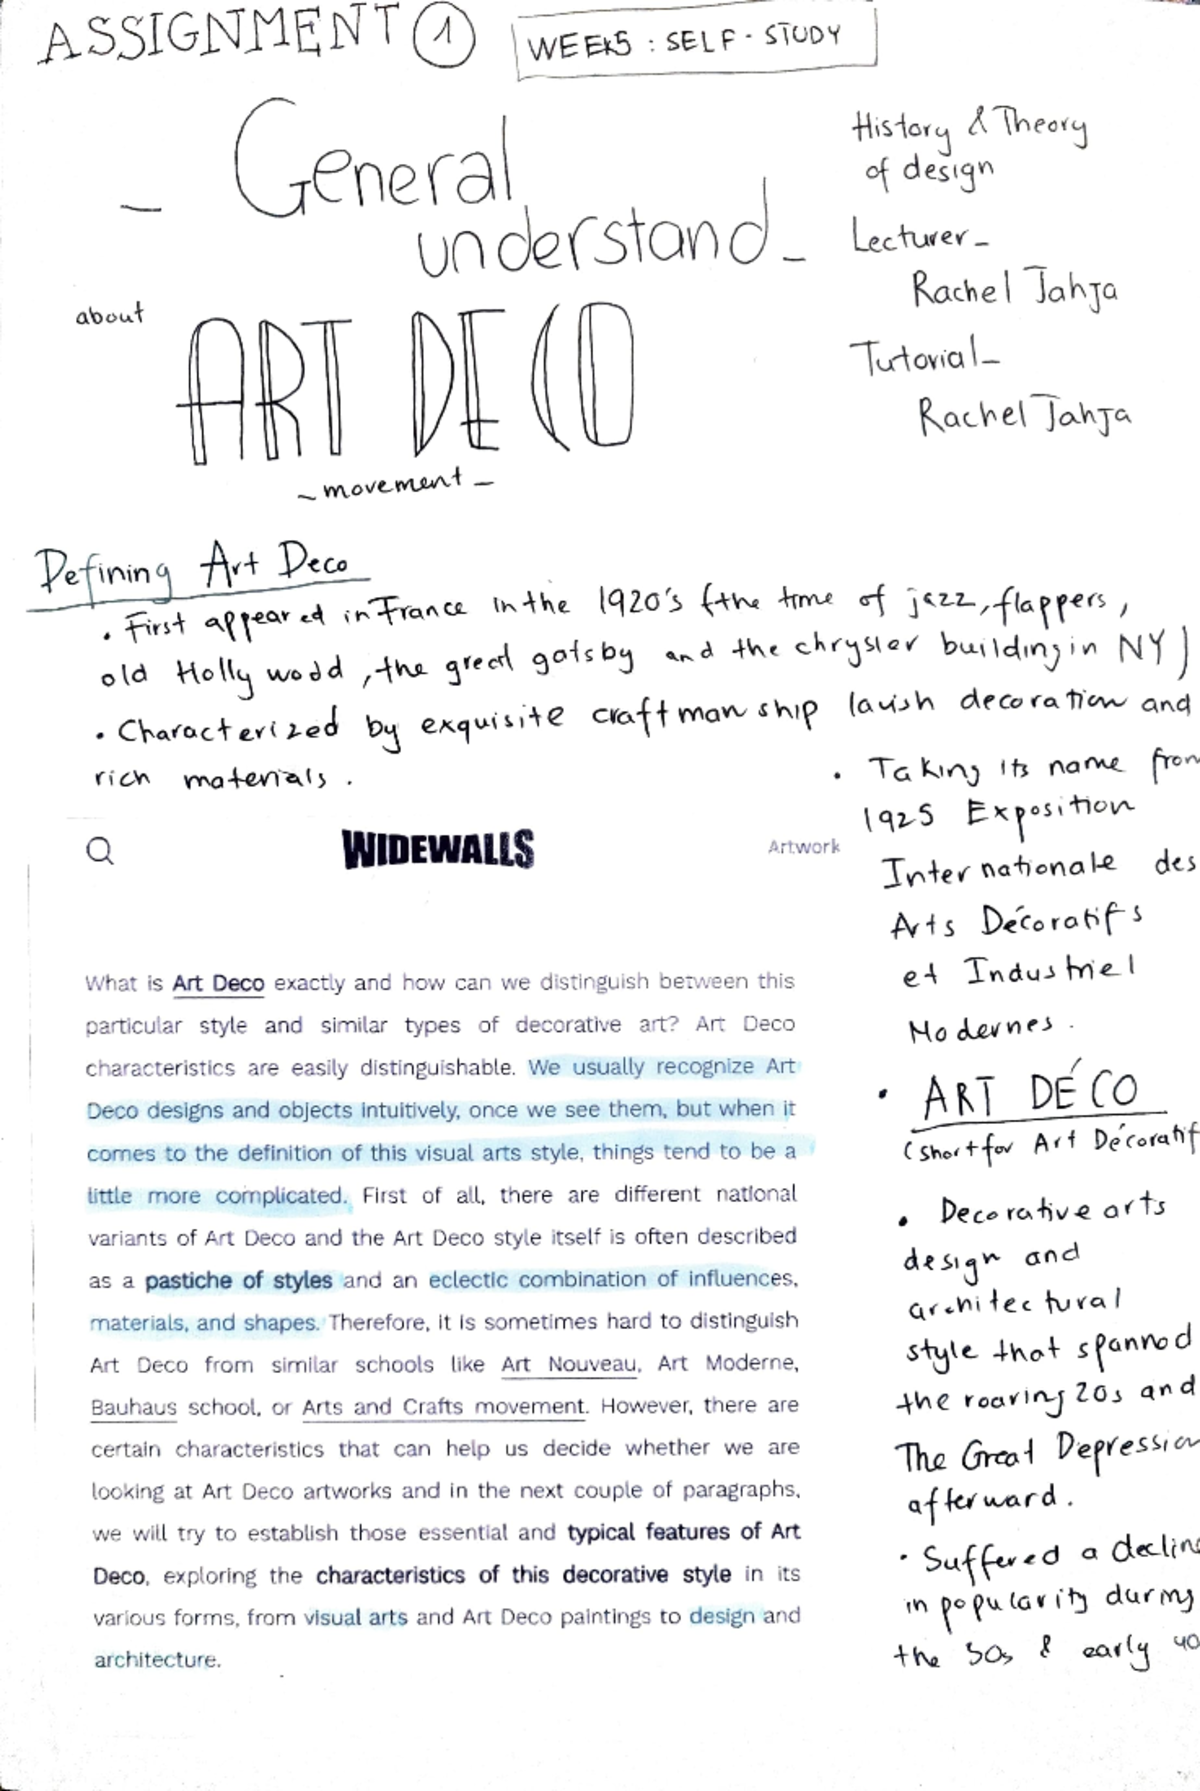 ASSIGNMENT 1
WEEK5 : SELF-STUDY
_ General
understand_
about
ART DECO
~movement_
History & Theory
of design
Lecturer_
Rachel Jahja
Tutorial_
Rachel Jahja
Defining Art Deco
• First appeared in France in the 1920's (the time of jazz, flappers,
old Hollywood, the great gatsby and the chrysler building in NY)
• Characterized by exquisite craftmanship lavish decoration and
rich materials.
• Taking its name from
1925 Exposition
Internationale des
Arts Décoratifs
et Industriel
Modernes.
• ART DÉCO
(short for Art Décoratif
• Decorative arts
design and
architectural
style that spannod
the roaring 20s and
The Great Depression
afterward.
• Suffered a decline
in popularity during
the 30s & early 40
WIDEWALLS
Artwork
What is Art Deco exactly and how can we distinguish between this
particular style and similar types of decorative art? Art Deco
characteristics are easily distinguishable. We usually recognize Art
Deco designs and objects intuitively, once we see them, but when it
comes to the definition of this visual arts style, things tend to be a
little more complicated. First of all, there are different national
variants of Art Deco and the Art Deco style itself is often described
as a pastiche of styles and an eclectic combination of influences,
materials, and shapes. Therefore, it is sometimes hard to distinguish
Art Deco from similar schools like Art Nouveau, Art Moderne,
Bauhaus school, or Arts and Crafts movement. However, there are
certain characteristics that can help us decide whether we are
looking at Art Deco artworks and in the next couple of paragraphs,
we will try to establish those essential and typical features of Art
Deco, exploring the characteristics of this decorative style in its
various forms, from visual arts and Art Deco paintings to design and
architecture.